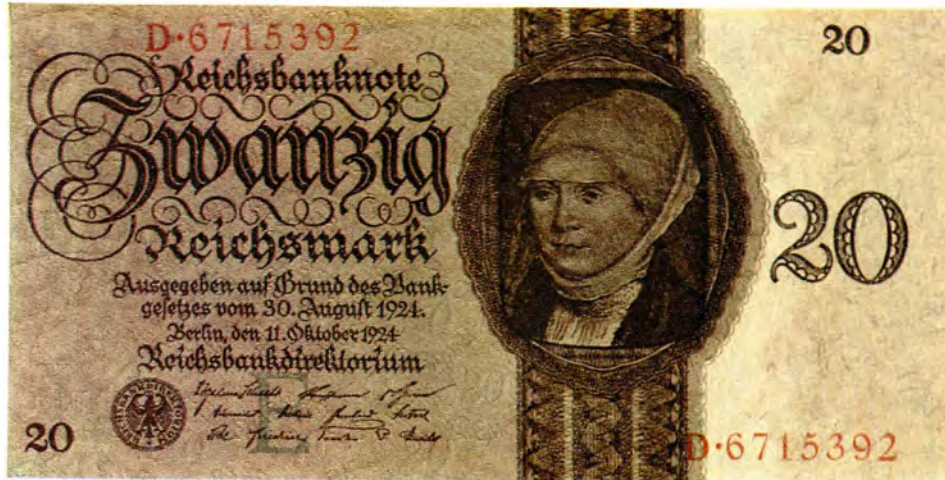 D·6715392
20
Reichsbanknote
Zwanzig
Reichsmark
20
Ausgegeben auf Grund des Bank-
gesetzes vom 30. August 1924.
Berlin, den 11. Oktober 1924
Reichsbankdirektorium
20
D·6715392